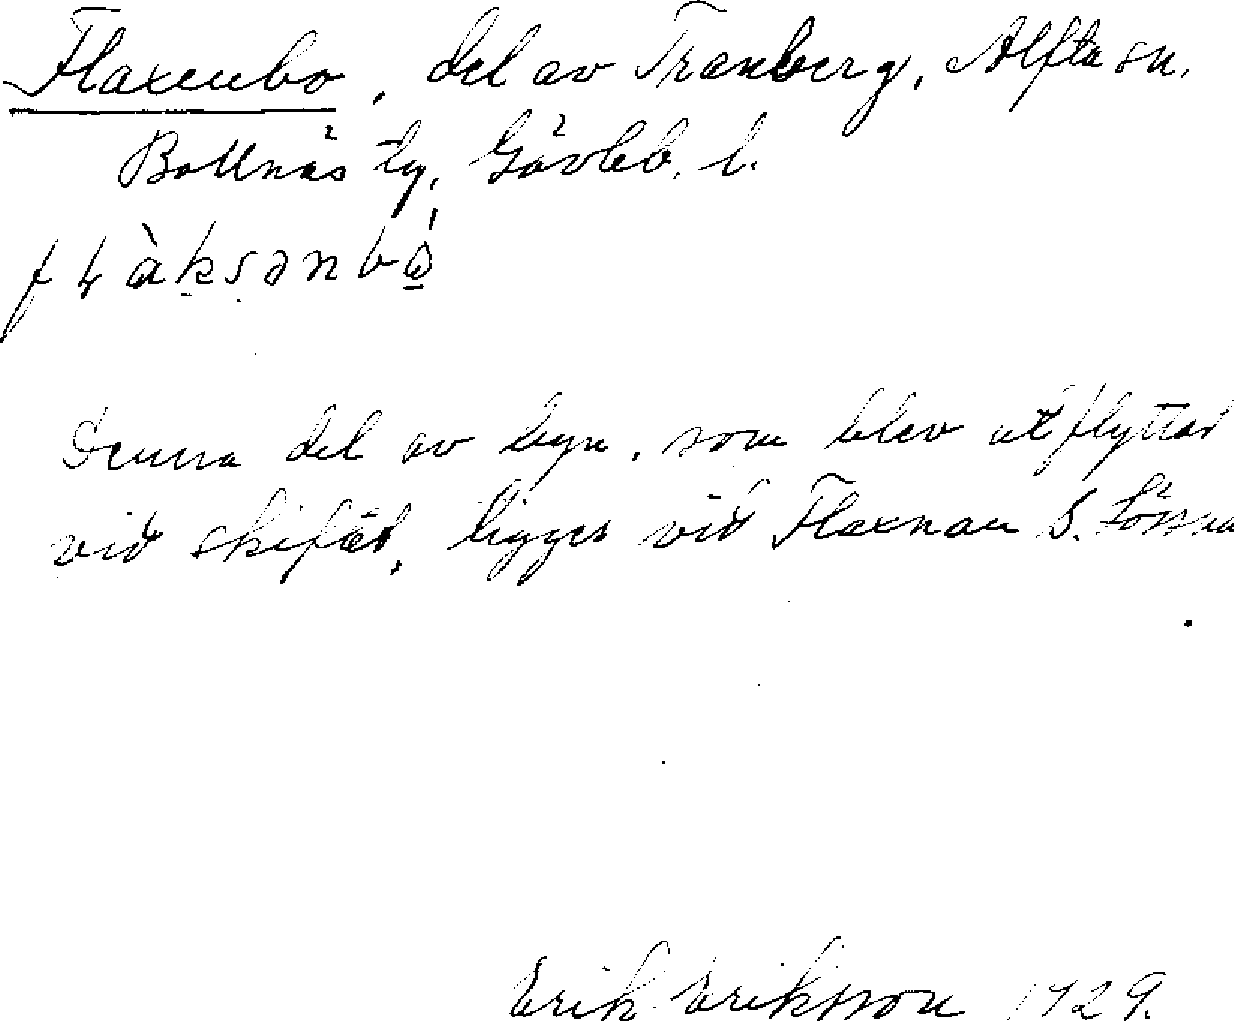 Flaxenbo, del av Tranberg, Alfta sn.
Bollnäs tg, Gävleb. l.
fɫàksənbó̠
Denna del av byn, som blev utflyttad
vid skiftet, ligger vid Flaxnan S. Lössna
Erik Eriksson 1929.